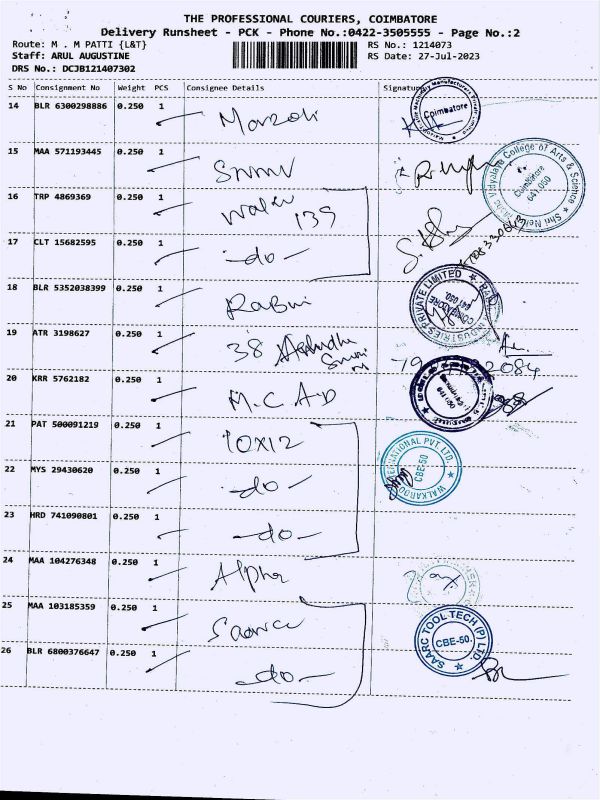 THE PROFESSIONAL COURIERS, COIMBATORE
Delivery Runsheet - PCK - Phone No.:0422-3505555 - Page No.:2
Route: M . M PATTI {L&T}
RS No.: 1214073
Staff: ARUL AUGUSTINE
RS Date: 27-Jul-2023
DRS No.: DCJB121407302
S No Consignment No Weight PCS Consignee Details Signature
14 BLR 6300298886 0.250 1
Coimbatore
15 MAA 571193445 0.250 1
Vidyalaya College of Arts & Science
Coimbatore
641.050
16 TRP 4869369 0.250 1
139
17 CLT 15682595 0.250 1 -do-
18 BLR 5352038399 0.250 1
INDUSTRIES PRIVATE LIMITED
COIMBATORE
641 050.
19 ATR 3198627 0.250 1 38
20 KRR 5762182 0.250 1 M.C.A.D
641 050
21 PAT 500091219 0.250 1 10X12
22 MYS 29430620 0.250 1 -do-
INTERNATIONAL PVT. LTD.
CBE-50
23 HRD 741090801 0.250 1 -do-
24 MAA 104276348 0.250 1 Alpha
25 MAA 103185359 0.250 1
SAARC TOOL TECH (P) LTD.
CBE-50.
26 BLR 6800376647 0.250 1 -do-